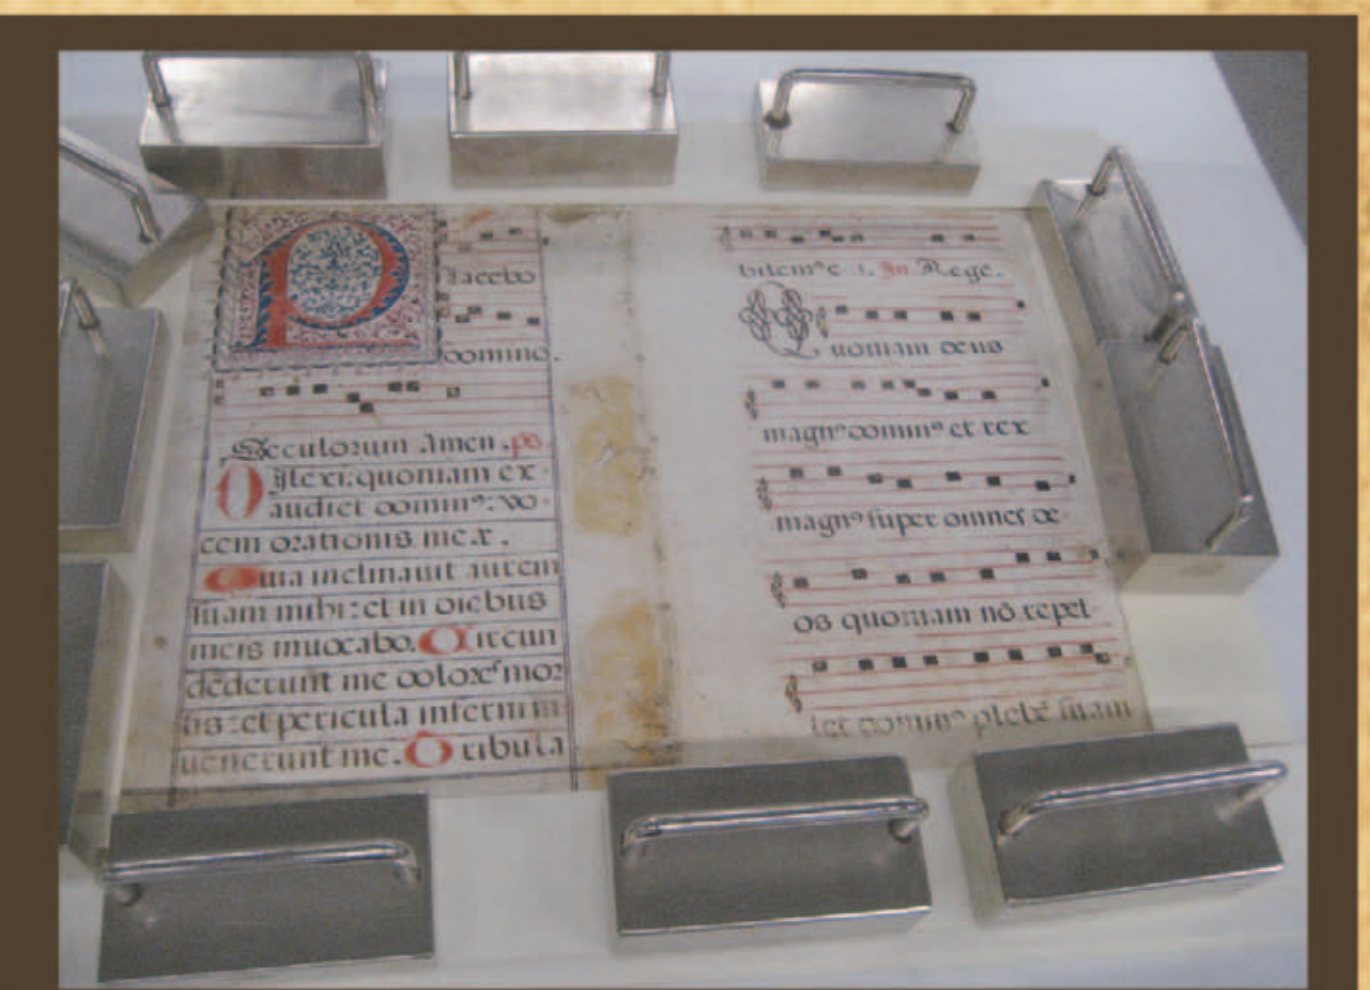 Placebo
domino.
Seculorum Amen. ps.
Dilexi: quoniam ex-
audiet dominꝰ: vo-
cem orationis meæ.
Quia inclinauit aurem
suam mihi: et in diebus
meis inuocabo. Circun
dederunt me dolores mor
tis: et pericula inferni in
uenerunt me. Tribula
In Rege.
Quoniam deus
magnꝰ dominꝰ et rex
magnꝰ super omnes de-
os quoniam nō repel-
let dominꝰ plebē suam